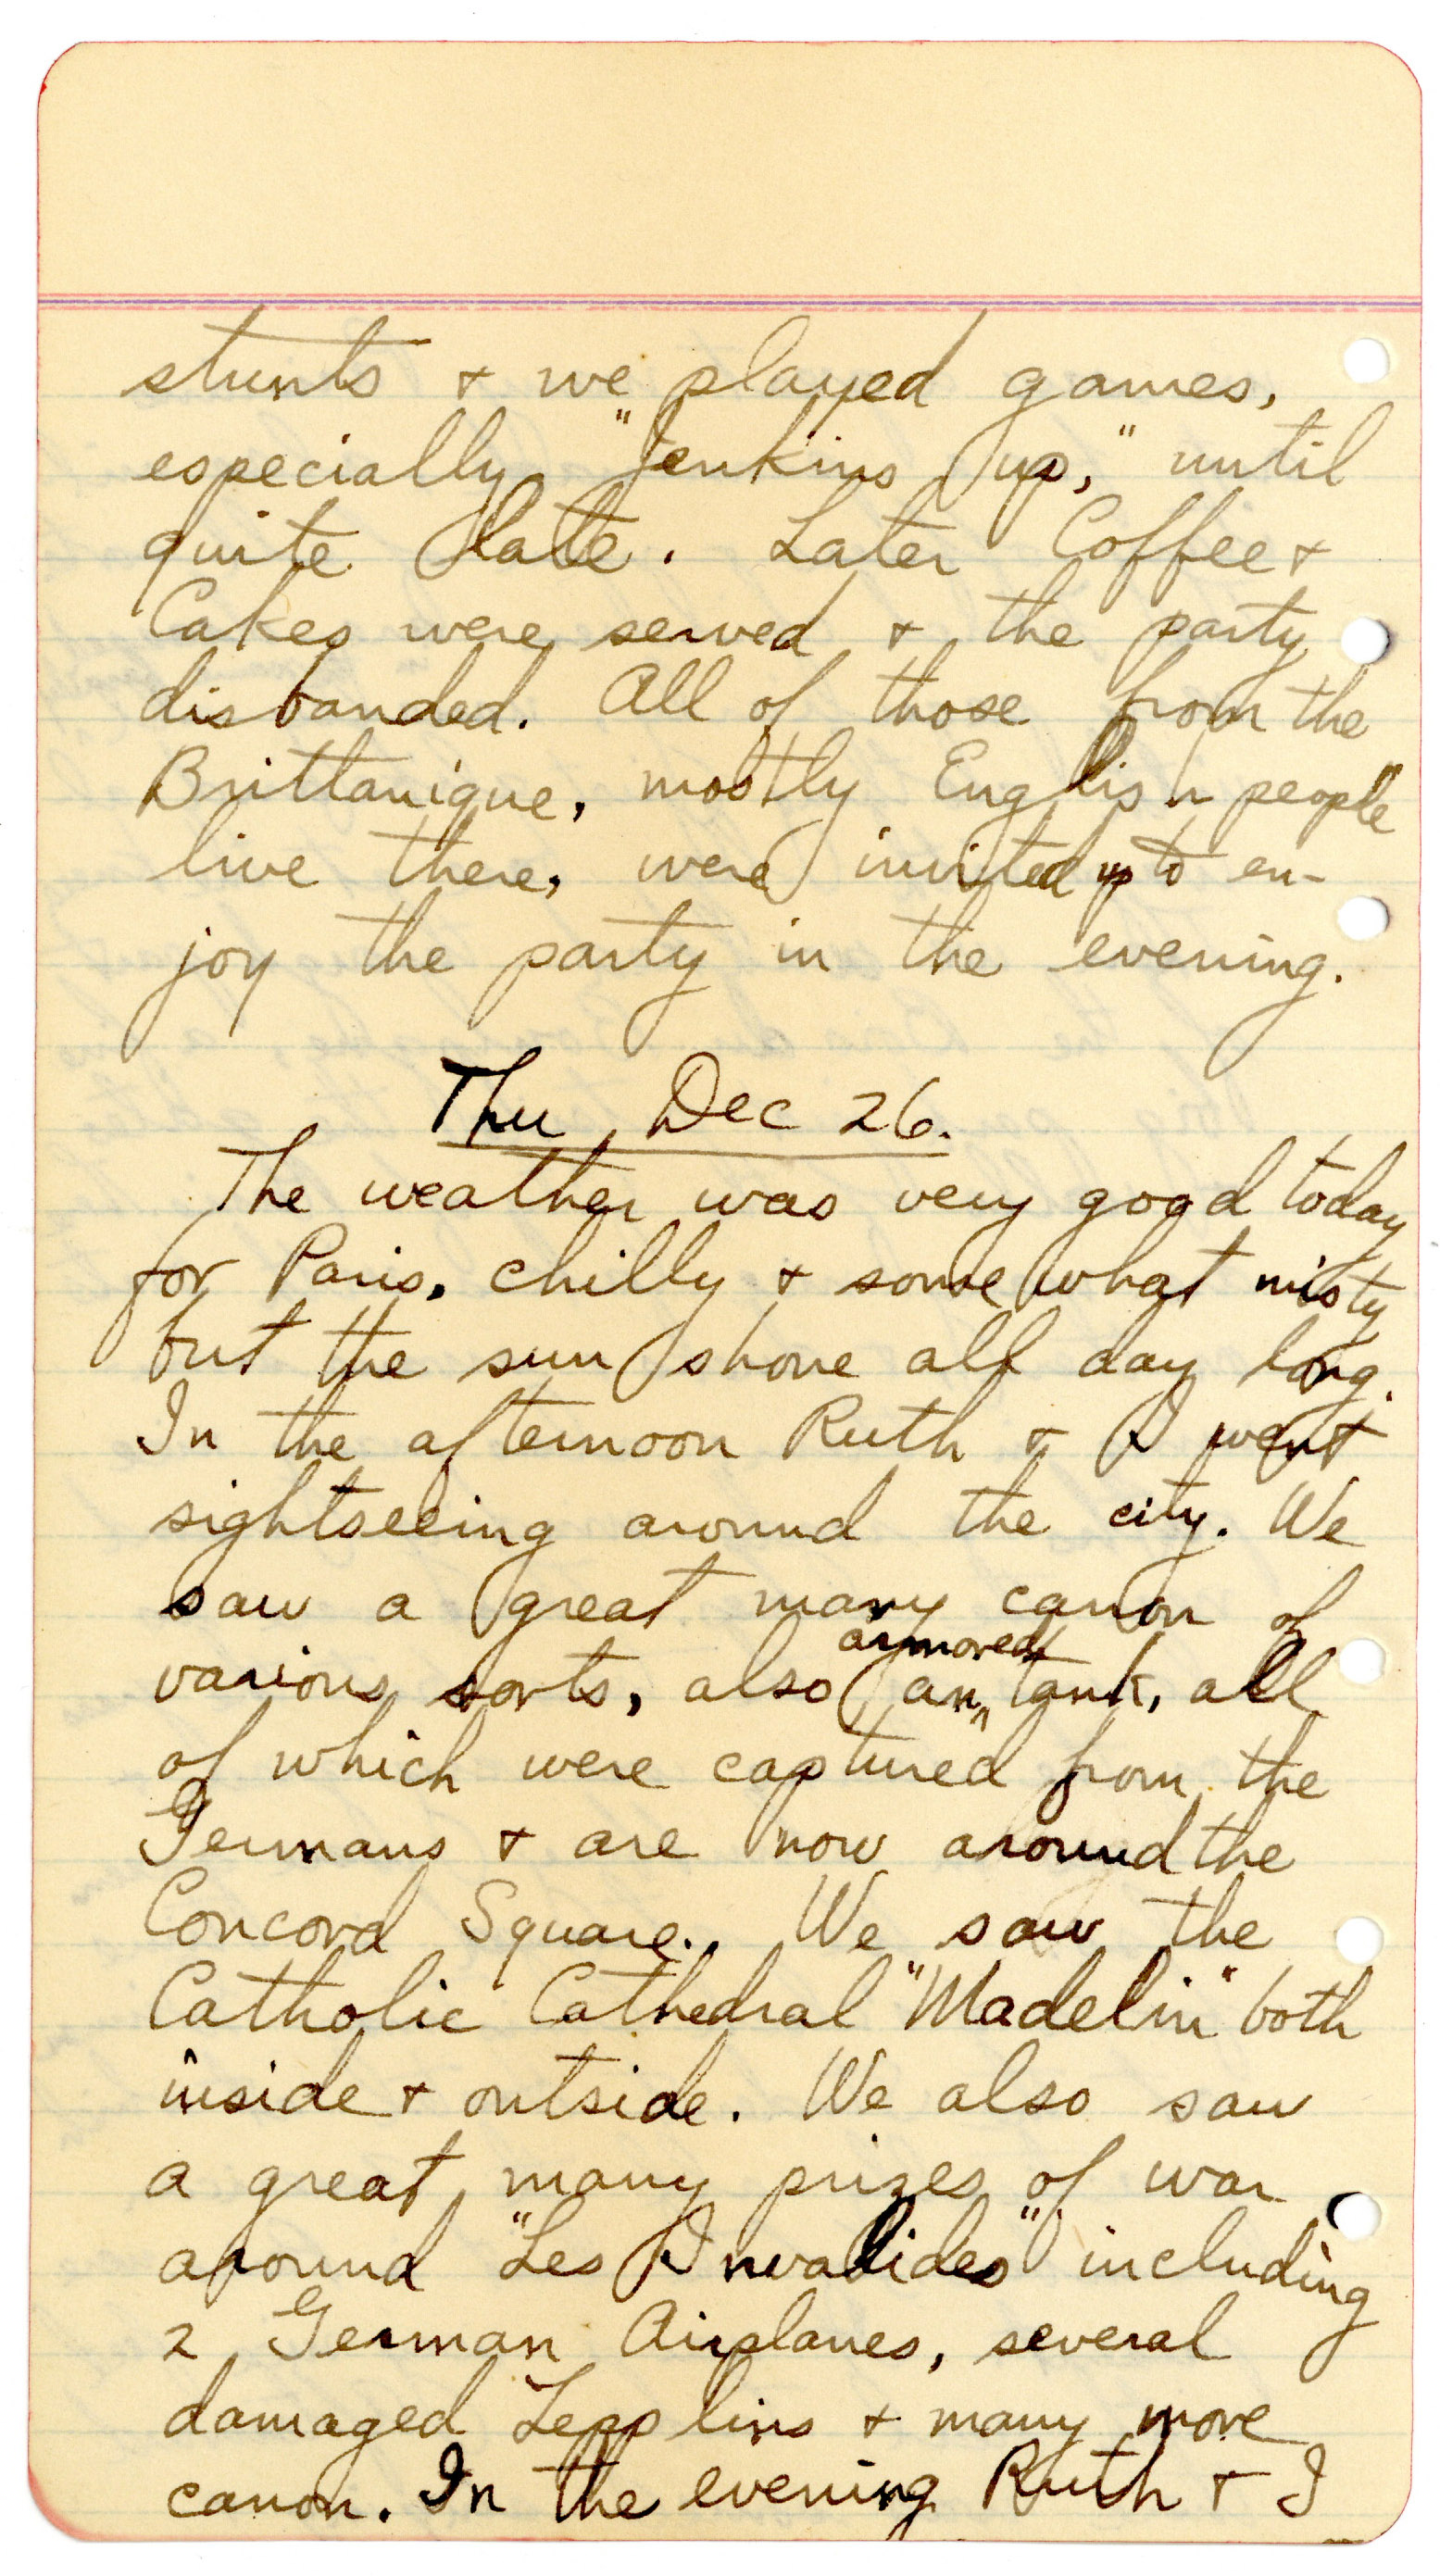 stunts + we played games,
especially "Jenkins up," until
quite late. Later Coffee +
Cakes were served + the party
disbanded. All of those from the
Brittanique, mostly English people
live there, were invited up to en-
joy the party in the evening.
Thu, Dec 26.
The weather was very good today
for Paris. chilly + somewhat misty
but the sun shone all day long.
In the afternoon Ruth + I went
sightseeing around the city. We
saw a great many canon of
armored
various sorts, also an ^ tank, all
of which were captured from the
Germans + are now around the
Concord Square. We saw the
Catholic Cathedral "Madelin" both
inside + outside. We also saw
a great many prizes of war
around "Les Invalides" including
2 German Airplanes, several
damaged Zepplins + many more
canon. In the evening Ruth + I